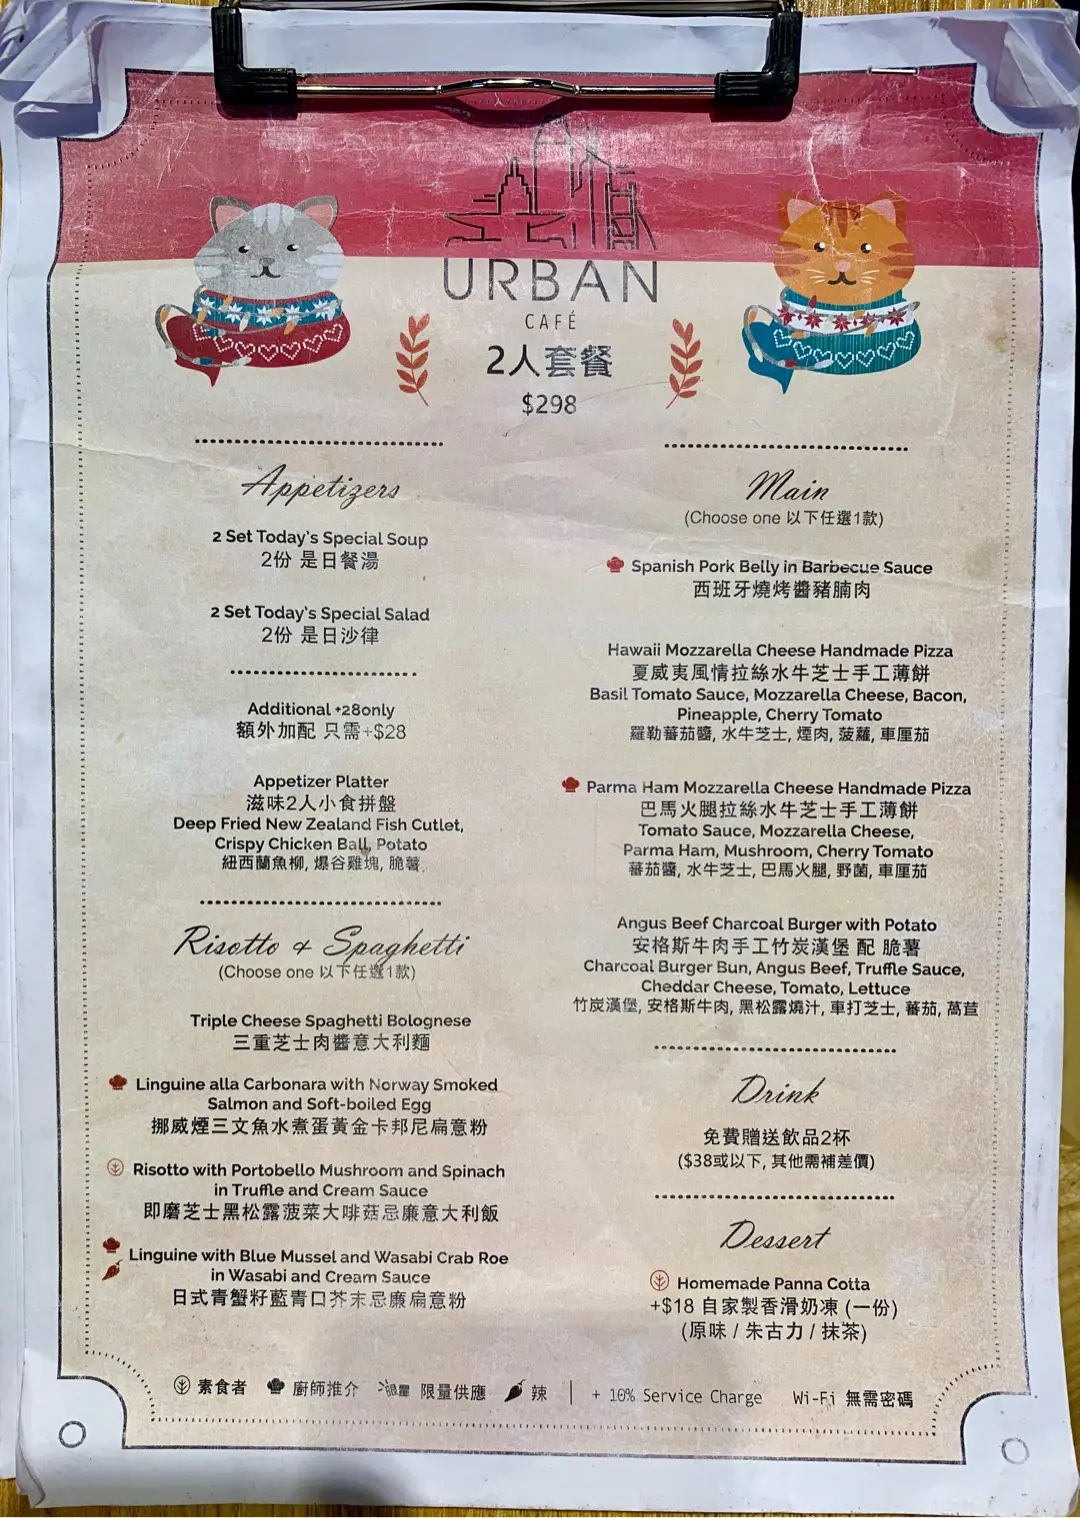 URBAN
CAFÉ
2人套餐
$298
Appetizers
2 Set Today's Special Soup
2份 是日餐湯
2 Set Today's Special Salad
2份 是日沙律
Additional +28only
額外加配 只需+$28
Appetizer Platter
滋味2人小食拼盤
Deep Fried New Zealand Fish Cutlet,
Crispy Chicken Ball, Potato
紐西蘭魚柳, 爆谷雞塊, 脆薯
Risotto & Spaghetti
(Choose one 以下任選1款)
Triple Cheese Spaghetti Bolognese
三重芝士肉醬意大利麵
Linguine alla Carbonara with Norway Smoked
Salmon and Soft-boiled Egg
挪威煙三文魚水煮蛋黃金卡邦尼扁意粉
Risotto with Portobello Mushroom and Spinach
in Truffle and Cream Sauce
即磨芝士黑松露菠菜大啡菇忌廉意大利飯
Linguine with Blue Mussel and Wasabi Crab Roe
in Wasabi and Cream Sauce
日式青蟹籽藍青口芥末忌廉扁意粉
Main
(Choose one 以下任選1款)
Spanish Pork Belly in Barbecue Sauce
西班牙燒烤醬豬腩肉
Hawaii Mozzarella Cheese Handmade Pizza
夏威夷風情拉絲水牛芝士手工薄餅
Basil Tomato Sauce, Mozzarella Cheese, Bacon,
Pineapple, Cherry Tomato
羅勒蕃茄醬, 水牛芝士, 煙肉, 菠蘿, 車厘茄
Parma Ham Mozzarella Cheese Handmade Pizza
巴馬火腿拉絲水牛芝士手工薄餅
Tomato Sauce, Mozzarella Cheese,
Parma Ham, Mushroom, Cherry Tomato
蕃茄醬, 水牛芝士, 巴馬火腿, 野菌, 車厘茄
Angus Beef Charcoal Burger with Potato
安格斯牛肉手工竹炭漢堡 配 脆薯
Charcoal Burger Bun, Angus Beef, Truffle Sauce,
Cheddar Cheese, Tomato, Lettuce
竹炭漢堡, 安格斯牛肉, 黑松露燒汁, 車打芝士, 蕃茄, 萵苣
Drink
免費贈送飲品2杯
($38或以下, 其他需補差價)
Dessert
Homemade Panna Cotta
+$18 自家製香滑奶凍 (一份)
(原味 / 朱古力 / 抹茶)
素食者 廚師推介 限量 限量供應 辣 | + 10% Service Charge Wi-Fi 無需密碼